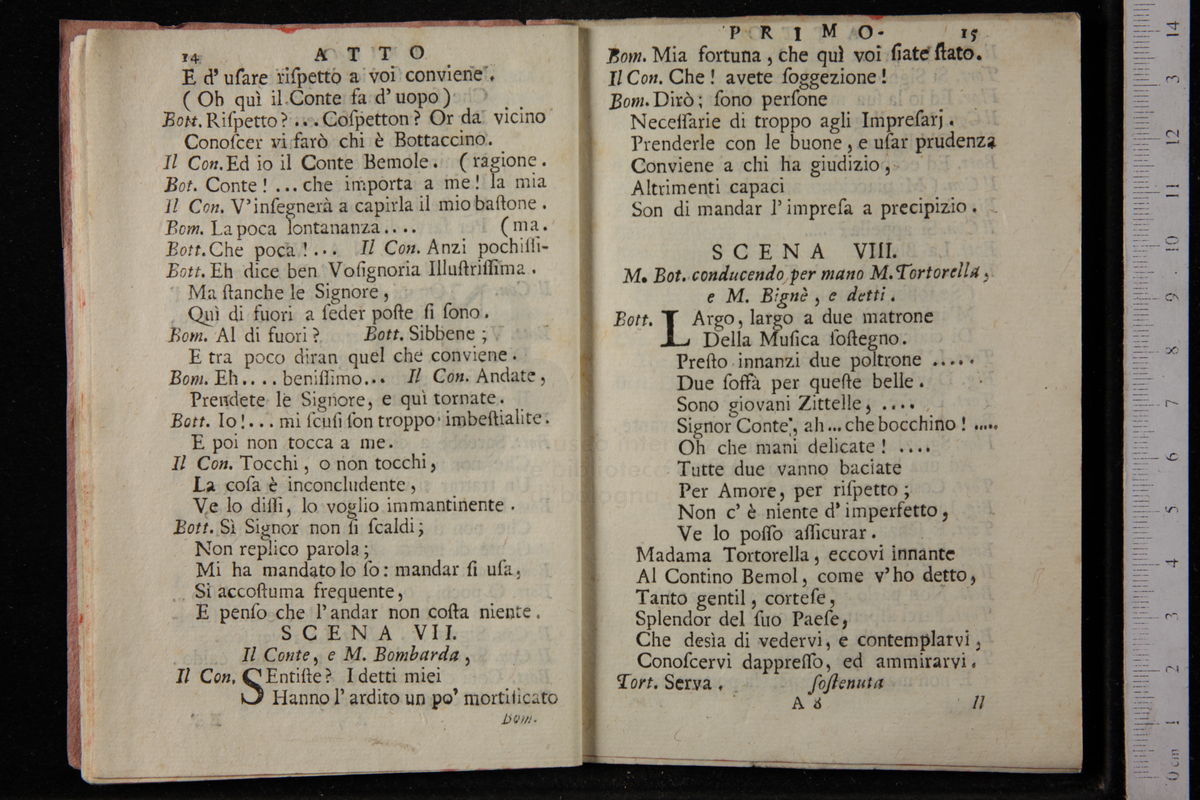 14 ATTO
E d' uſare riſpetto a voi conviene.
( Oh quì il Conte fa d' uopo )
Bott. Riſpetto? ... Coſpetton? Or da vicino
Conoſcer vi farò chi è Bottaccino.
Il Con. Ed io il Conte Bemole. (ragione.
Bot. Conte! ... che importa a me! la mia
Il Con. V'inſegnerà a capirla il mio baſtone.
Bom. La poca lontananza.... (ma.
Bott. Che poca!... Il Con. Anzi pochiſſi-
Bott. Eh dice ben Voſignoria Illuſtriſſima.
Ma ſtanche le Signore,
Quì di fuori a ſeder poſte ſi ſono.
Bom. Al di fuori? Bott. Sibbene;
E tra poco diran quel che conviene.
Bom. Eh.... beniſſimo... Il Con. Andate,
Prendete le Signore, e quì tornate.
Bott. Io!... mi ſcuſi ſon troppo imbeſtialite.
E poi non tocca a me.
Il Con. Tocchi, o non tocchi,
La coſa è inconcludente,
Ve lo diſſi, lo voglio immantinente.
Bott. Sì Signor non ſi ſcaldi;
Non replico parola;
Mi ha mandato lo ſo: mandar ſi uſa,
Si accoſtuma frequente,
E penſo che l'andar non coſta niente.
SCENA VII.
Il Conte, e M. Bombarda,
Il Con. SEntiſte? I detti miei
Hanno l'ardito un po' mortificato
Bom.
PRIMO. 15
Bom. Mia fortuna, che quì voi ſiate ſtato.
Il Con. Che! avete ſoggezione!
Bom. Dirò; ſono perſone
Neceſſarie di troppo agli Impreſarj.
Prenderle con le buone, e uſar prudenza
Conviene a chi ha giudizio,
Altrimenti capaci
Son di mandar l'impreſa a precipizio.
SCENA VIII.
M. Bot. conducendo per mano M. Tortorella,
e M. Bignè, e detti.
Bott. LArgo, largo a due matrone
Della Muſica ſoſtegno.
Preſto innanzi due poltrone .....
Due ſoffà per queſte belle.
Sono giovani Zittelle, ....
Signor Conte, ah... che bocchino! .....
Oh che mani delicate! ....
Tutte due vanno baciate
Per Amore, per riſpetto;
Non c' è niente d' imperfetto,
Ve lo poſſo aſſicurar.
Madama Tortorella, eccovi innante
Al Contino Bemol, come v'ho detto,
Tanto gentil, corteſe,
Splendor del ſuo Paeſe,
Che desìa di vedervi, e contemplarvi,
Conoſcervi dappreſſo, ed ammirarvi.
Tort. Serva. ſoſtenuta
A 8 Il